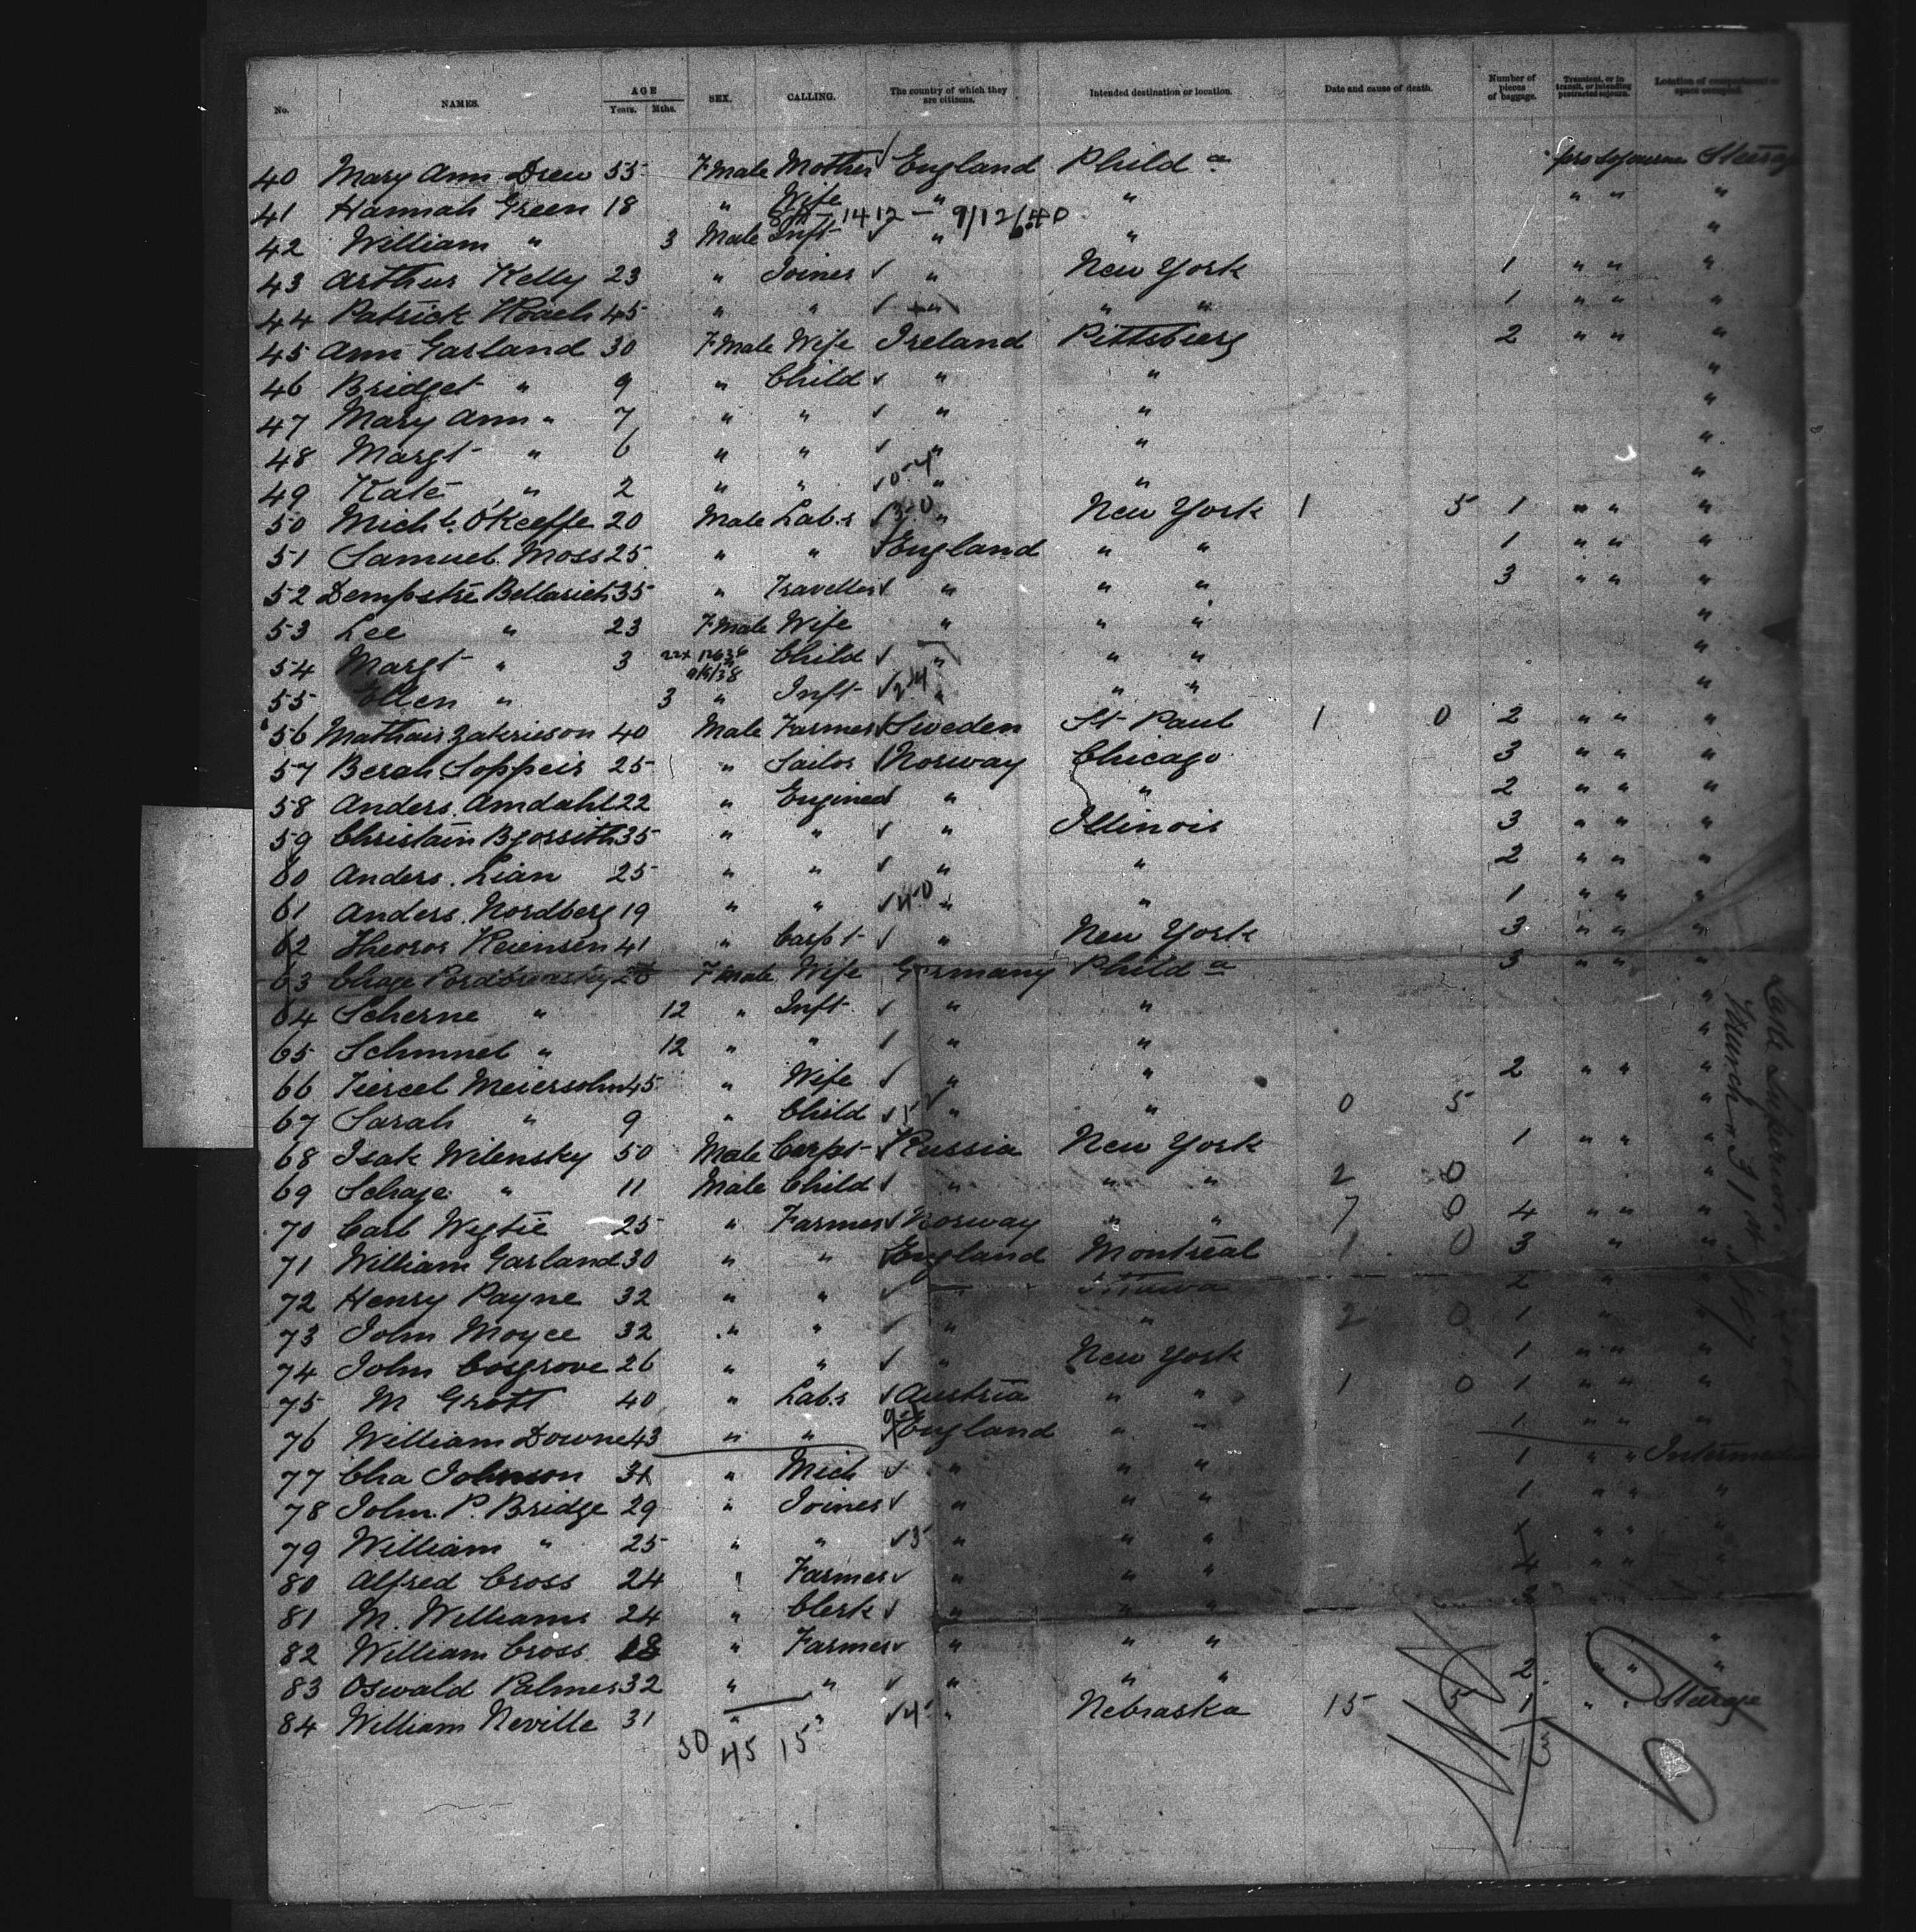 No. NAMES. AGE Years. Mths. SEX. CALLING. The country of which they are citizens. Intended destination or location. Date and cause of death. Number of pieces of baggage. Transient, or in transit, or intending protracted sojourn. Location of compartment or space occupied.
40 Mary Ann Drew 55 F Male Mother England Philda pro sojourn Steerage
41 Hannah Green 18 " Wife " " " " "
8M-1412-9/12/40
42 William " 3 Male Inft " " "
43 Arthur Kelly 23 " Joiner " New York 1 " " "
44 Patrick Roach 45 " " " " " 1 " " "
45 Ann Garland 30 F Male Wife Ireland Pittsburg 2 " " "
46 Bridget " 9 " Child " " "
47 Mary Ann " 7 " " " " "
48 Margt " 6 " " " " "
49 Kate " 2 " " " " "
50 Michl. O'Keeffe 20 Male Labr " New York 1 5 1 " " "
51 Samuel Moss 25 " " England " " 1 " " "
52 Dempstre Bellarich 35 " Traveller " " " 3 " " "
53 Lee " 23 F Male Wife " " " "
54 Margt " 3 Child " " " "
55 Ellen " 3 " Inft " " " "
56 Mathais Zakrieson 40 Male Farmer Sweden St Paul 1 0 2 " " "
57 Berah Soppeir 25 " Sailor Norway Chicago 3 " " "
58 Anders Amdahl 22 " Engineer " " 2 " " "
59 Christain Bjorsith 35 " " " Illinois 3 " " "
60 Anders. Lian 25 " " " " 2 " " "
61 Anders. Nordberg 19 " " 40 " " 1 " " "
62 Theoror Reiensen 41 " Carpt " New York 3 " " "
63 26 F Male Wife Germany Philda 3 " " "
64 Scherne " 12 " Inft " " "
65 Schmnel " 12 " " " " "
66 Tiercel Meiersohn 45 " Wife " " 2 " " "
67 Sarah " 9 " Child " " 0 5 "
68 Isak Wilensky 50 Male Carpt Russia New York 1 " " "
69 Schaje " 11 Male Child " " " 2 0 "
70 Carl Wegtie 25 " Farmer Norway " " 7 0 4 " " "
71 William Garland 30 " " England Montreal 1 0 3 " "
72 Henry Payne 32 " " " Ottawa 2 "
73 John Moyce 32 " " " " 2 0 1 " "
74 John Cosgrove 26 " " " New York 1 " " "
75 M Grott 40 " Labr Austria " " 1 0 1 " " "
76 William Downe 43 " " England " " 1 " " "
77 Cha Johnson 31 " Mich " " " 1 " " Intermediate
78 John. P. Bridge 29 " Joiner " " " 1 " " "
79 William " 25 " " 3 " " " 1 " " "
80 Alfred Cross 24 " Farmer " " " 4 " " "
81 M. Williams 24 " Clerk " " " 3
82 William Cross 18 " Farmer " " " " "
83 Oswald Palmer 32 " " " " " 2 " " "
84 William Neville 31 " " 4 " Nebraska 15 5 1 " " Steerage
30 45 15
Lake Superior.
March 31st 1887